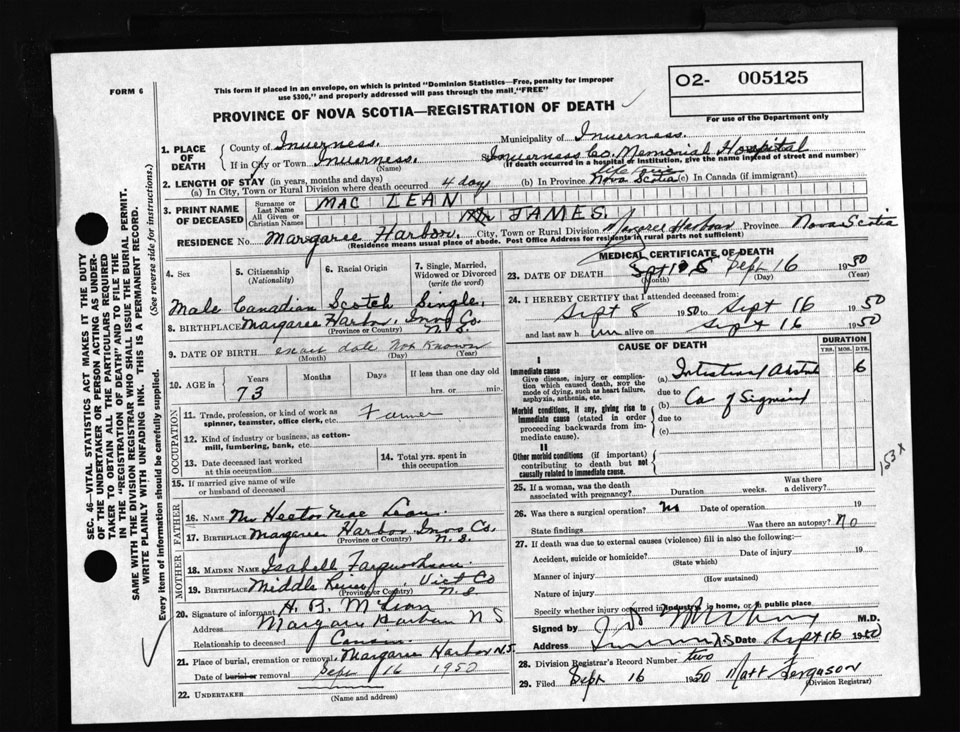 FORM 6
This form if placed in an envelope, on which is printed "Dominion Statistics—Free, penalty for improper
use $300," and properly addressed will pass through the mail "FREE"
O2- 005125
For use of the Department only
PROVINCE OF NOVA SCOTIA—REGISTRATION OF DEATH
1. PLACE OF DEATH
County of Inverness. Municipality of Inverness.
If in City or Town Inverness. (Name) Inverness Co. Memorial Hospital
(If death occurred in a hospital or institution, give the name instead of street and number)
2. LENGTH OF STAY (in years, months and days)
(a) In City, Town or Rural Division where death occurred 4 day (b) In Province Nova Scotia (c) In Canada (if immigrant)
3. PRINT NAME OF DECEASED
Surname or Last Name MAC LEAN
All Given or Christian Names JAMES.
RESIDENCE No. Margaree Harbor. City, Town or Rural Division Margaree Harbour Province Nova Scotia
(Residence means usual place of abode. Post Office Address for residents in rural parts not sufficient)
4. Sex
Male
5. Citizenship (Nationality)
Canadian
6. Racial Origin
Scotch
7. Single, Married, Widowed or Divorced (write the word)
Single.
8. BIRTHPLACE Margaree Harbor, Invs Co. N S
(Province or Country)
9. DATE OF BIRTH exact date not known
(Month) (Day) (Year)
10. AGE in Years Months Days If less than one day
73 hrs. or min.
OCCUPATION
11. Trade, profession, or kind of work as spinner, teamster, office clerk, etc. Farmer
12. Kind of industry or business, as cotton-mill, lumbering, bank, etc.
13. Date deceased last worked at this occupation
14. Total yrs. spent in this occupation
15. If married give name of wife or husband of deceased
FATHER
16. NAME Mr Hector Mac Lean.
17. BIRTHPLACE Margaree Harbor Invs Co. N.S.
(Province or Country)
MOTHER
18. MAIDEN NAME Isabell Farquharson.
19. BIRTHPLACE Middle River, Vict Co N.S
(Province or Country)
20. Signature of informant H. B. McLean
Address Margaree Harbour N S
Relationship to deceased Cousin
21. Place of burial, cremation or removal Margaree Harbor N.S.
Date of burial or removal Sept 16 1950
22. UNDERTAKER
(Name and address)
MEDICAL CERTIFICATE OF DEATH
23. DATE OF DEATH Sept 16 1950
(Month) (Day) (Year)
24. I HEREBY CERTIFY that I attended deceased from:
Sept 8 1950 to Sept 16 1950
and last saw him alive on Sept 16 1950
CAUSE OF DEATH
DURATION
YRS. MOS. DYS.
I
Immediate cause
Give disease, injury or complication which caused death, not the mode of dying, such as heart failure, asphyxia, asthenia, etc.
(a) Intestinal Obstn 6
due to
Morbid conditions, if any, giving rise to immediate cause (stated in order proceeding backwards from immediate cause).
(b) Ca of Sigmoid
due to
(c)
II
Other morbid conditions (if important) contributing to death but not causally related to immediate cause.
153X
25. If a woman, was the death associated with pregnancy? Duration weeks. Was there a delivery?
26. Was there a surgical operation? No Date of operation 19
State findings Was there an autopsy? No
27. If death was due to external causes (violence) fill in also the following:—
Accident, suicide or homicide? Date of injury 19
(State which)
Manner of injury
(How sustained)
Nature of injury
Specify whether injury occurred in industry, in home, or in public place
Signed by M.D.
Address N.S Date Sept 16 1950
28. Division Registrar's Record Number two
29. Filed Sept 16 1950 Matt Ferguson
(Division Registrar)
SEC. 46—VITAL STATISTICS ACT MAKES IT THE DUTY
OF THE UNDERTAKER OR PERSON ACTING AS UNDER-
TAKER TO OBTAIN ALL THE PARTICULARS REQUIRED
IN THE "REGISTRATION OF DEATH" AND TO FILE THE
SAME WITH THE DIVISION REGISTRAR WHO SHALL ISSUE THE BURIAL PERMIT.
WRITE PLAINLY WITH UNFADING INK. THIS IS A PERMANENT RECORD.
Every item of information should be carefully supplied. (See reverse side for instructions.)